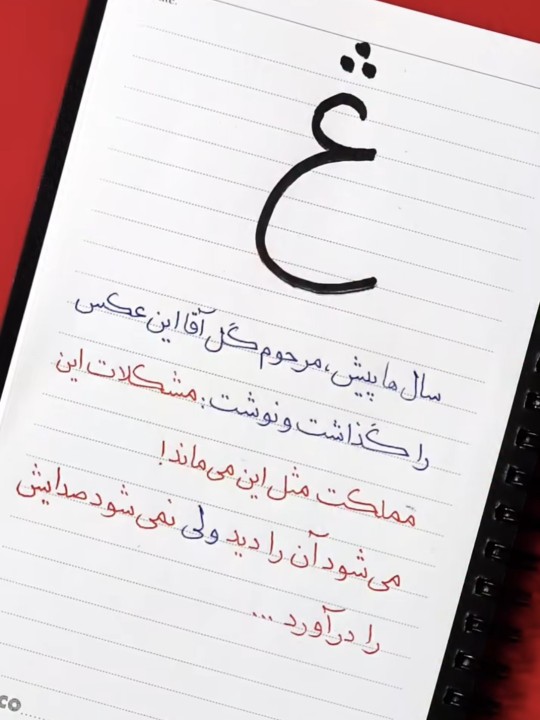 ڠ
سال ها پیش، مرحوم گل آقا این عکس
را گذاشت و نوشت: مشکلات این
مملکت مثل این می ماند!
می شود آن را دید ولی نمی شود صدایش
را درآورد ...